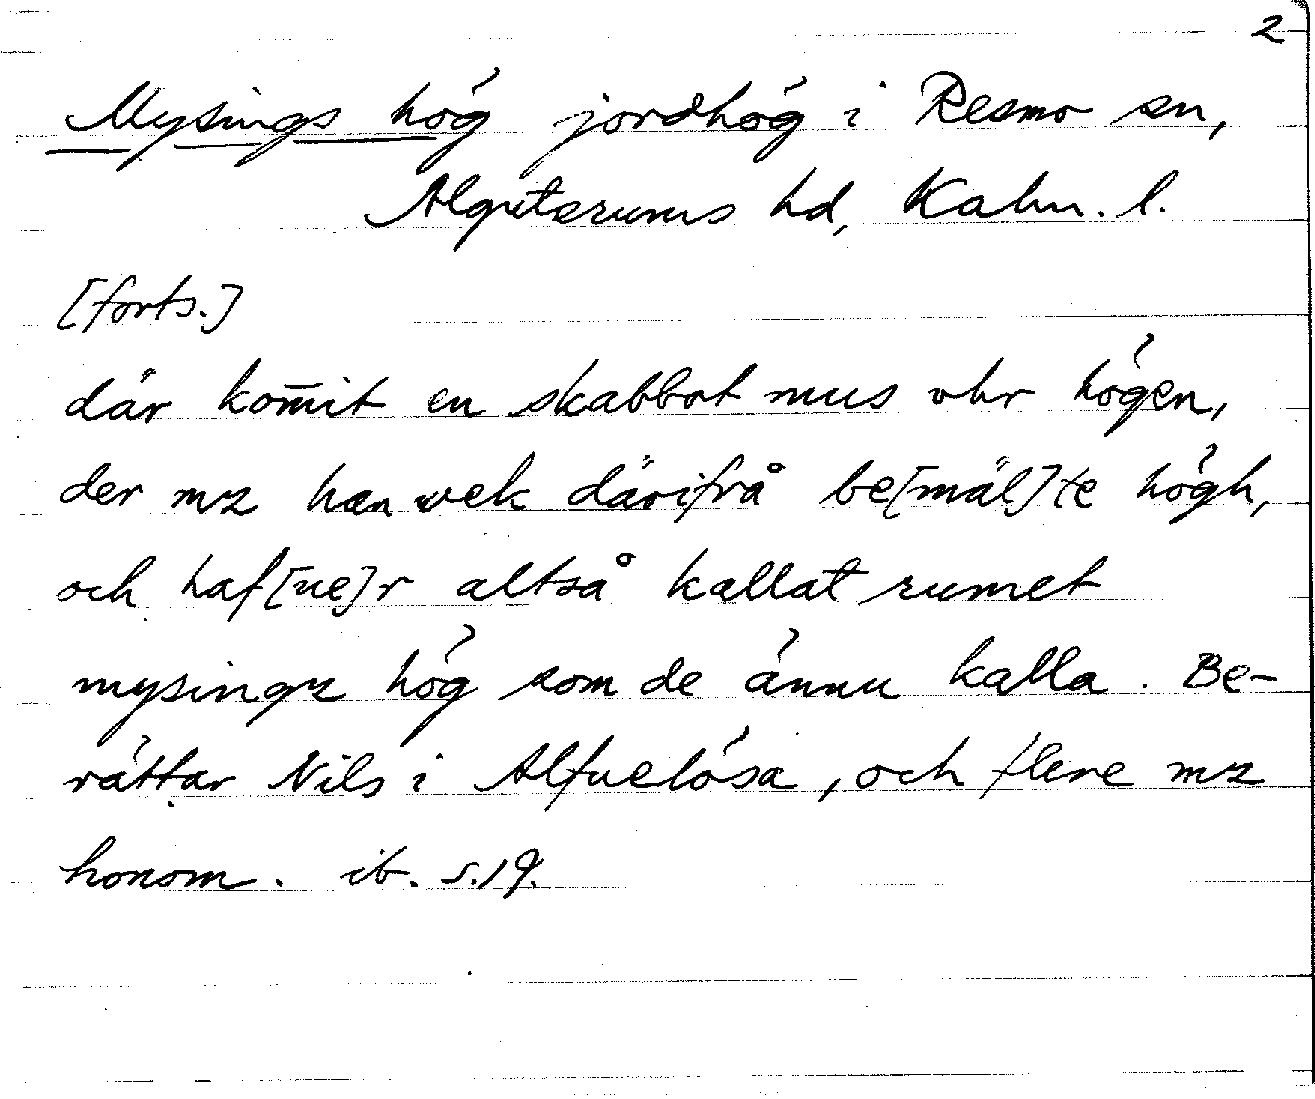 2
Mysings hög jordhög i Resmo sn,
Algutsrums hd, Kalm. l.
[forts.]
där kom̄it en skabbot mus vhr högen,
der mz han wek därifrå be[mäl]te högh,
och haf[ue]r altså kallat rumet
mysingz hög som de ännu kalla. Be-
rättar Nils i Alfuelösa, och flere mz
honom. ib. s.19.